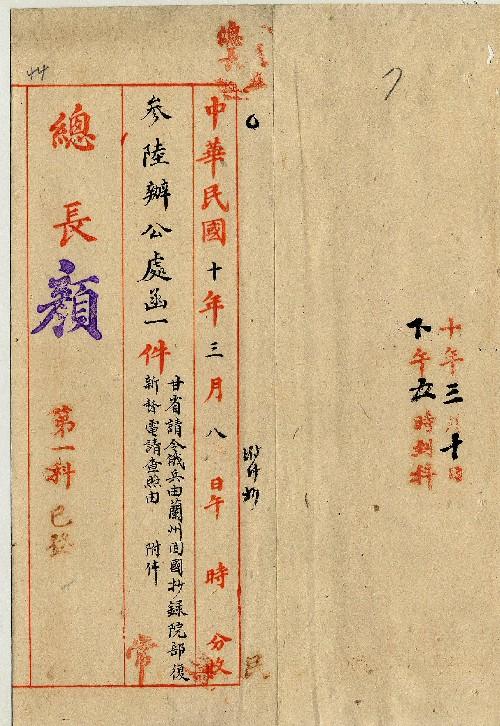 十年三月十日
下午五時到科
附件抄
中華民國十年三月八日午 時 分收
參陸辦公處函一件
甘省請令俄兵由蘭州回國抄錄院部復
新督電請查照由 附件
常
總長
總長顏
第一科
已發